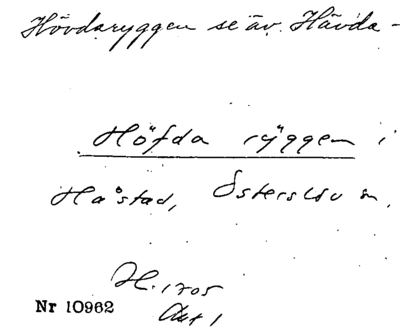 Hövdaryggen se äv. Hävda-
Höfda ryggen i
Håstad, Österslöv sn.
H. 1705
Akt 1
Nr 10962